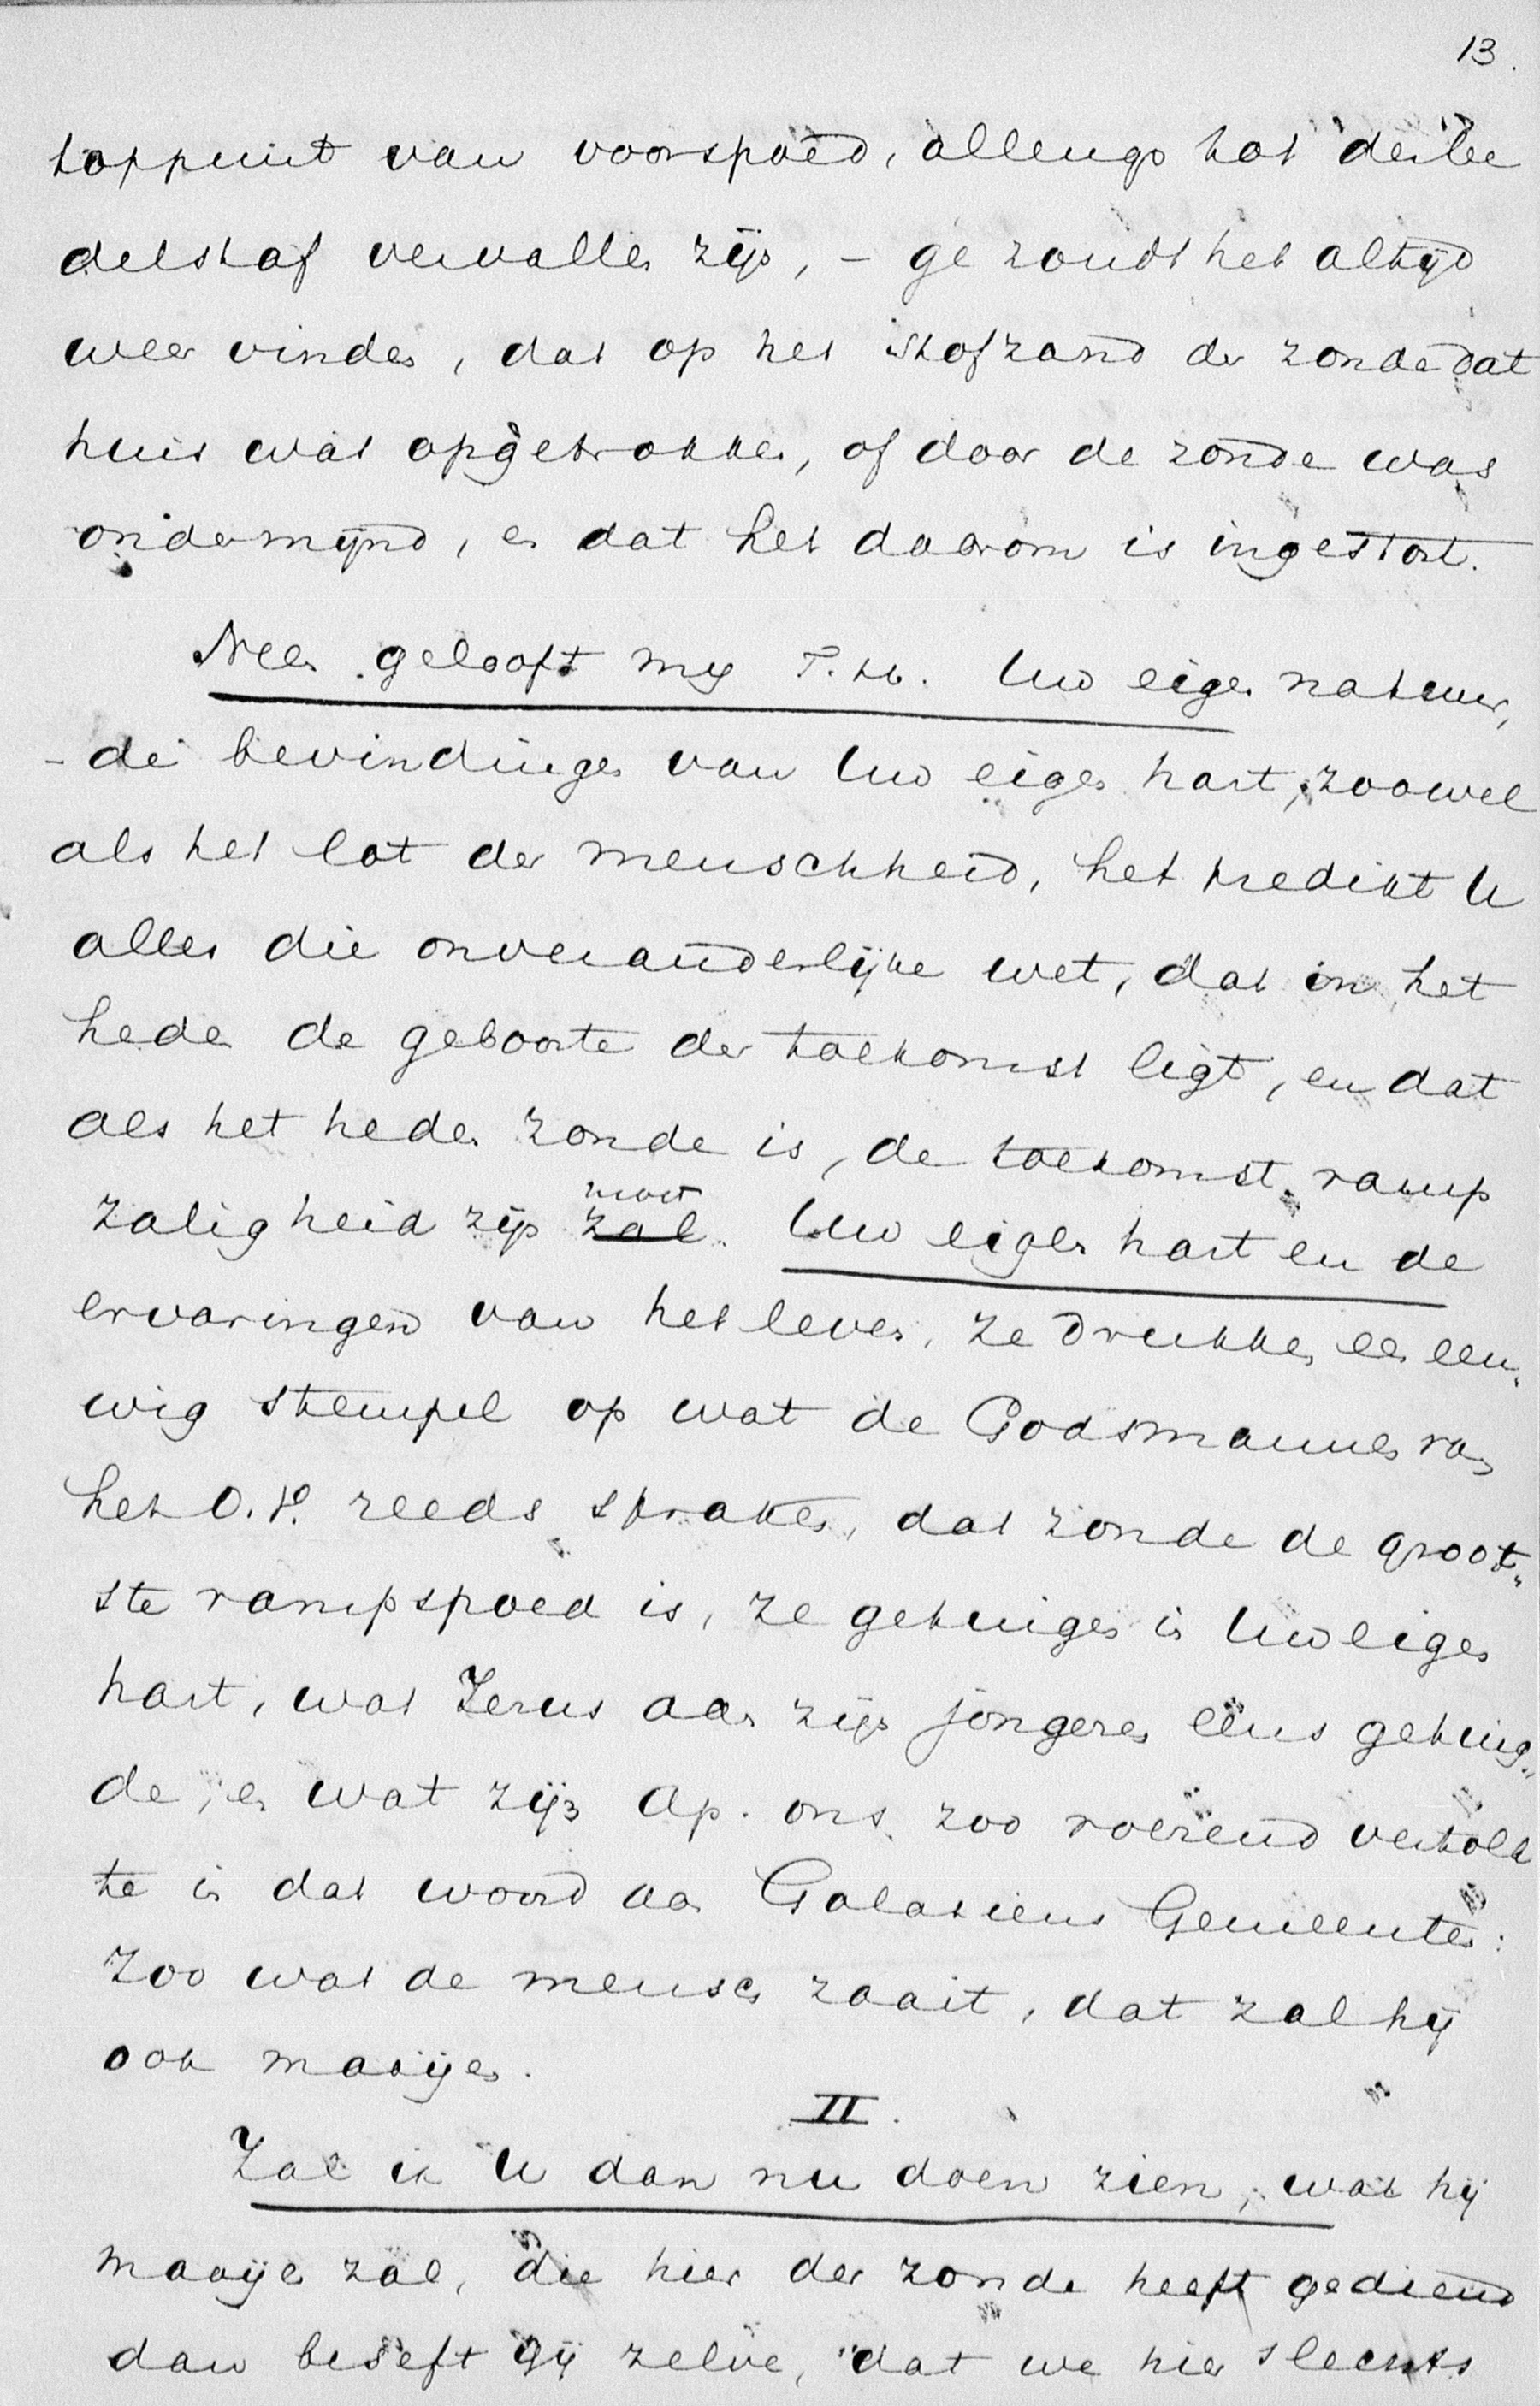 13.
toppunt van voorspoed, allengs tot den be
delstaf vervallen zijn, – ge zoudt het altijd
weer vinden, dat op het stofzand der zonde dat
huis was opgetrokken, of door de zonde was
ondermijnd, en dat het daarom is ingestort.
Neen gelooft mij T. H. Uw eigen natuur,
– de bevindingen van Uw eigen hart, zoowel
als het lot der menschheid, het predikt U
alles die onveranderlijke wet, dat in het
heden de geboorte der toekomst ligt, en dat
als het heden zonde is, de toekomst ramp
moet
zaligheid zijn zal. Uw eigen hart en de
ervaringen van het leven, ze drukken een eeu„
wig stempel op wat de Godsmannen van
het O. V. reeds spraken, dat zonde de groot„
ste rampspoed is, ze getuigen in Uw eigen
hart, wat Jezus aan zijn jongeren eens getuig„
de, en wat zijn Ap. ons zoo roerend vertolk
te in dat woord aan Galatiens Gemeenten:
Zoo wat de mensch zaait, dat zal hij
ook maaijen.
II.
Zal ik U dan nu doen zien, wat hij
maaijen zal, die hier der zonde heeft gediend
dan beseft gij zelve, dat we hier slechts